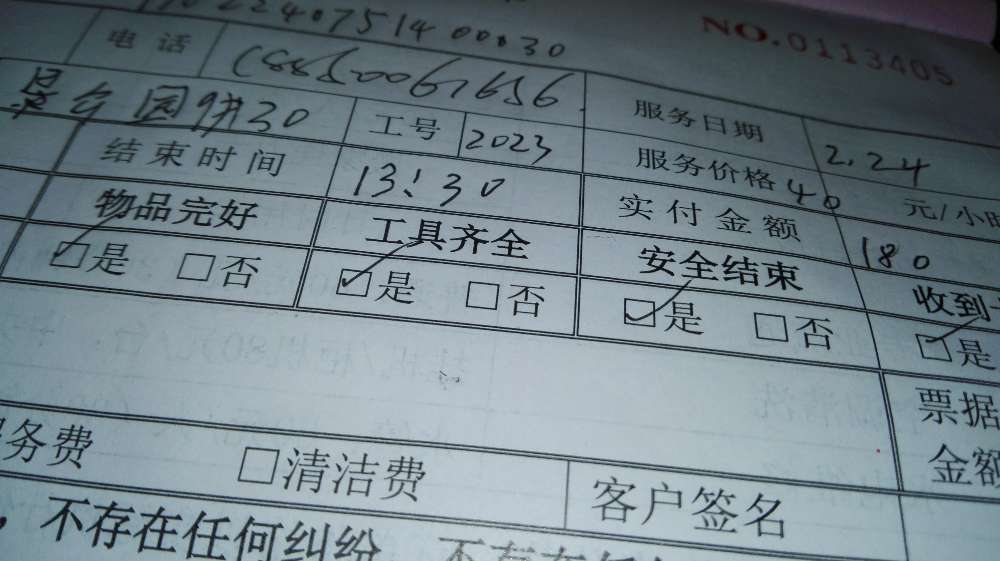 NO.0113405
电话 服务日期 2.24
工号 2023 服务价格 40 元/小时
结束时间 13:30 实付金额 180
物品完好 工具齐全 安全结束 收到
是 否 是 否 是 否 是
票据
金额
务费 清洁费 客户签名
，不存在任何纠纷，